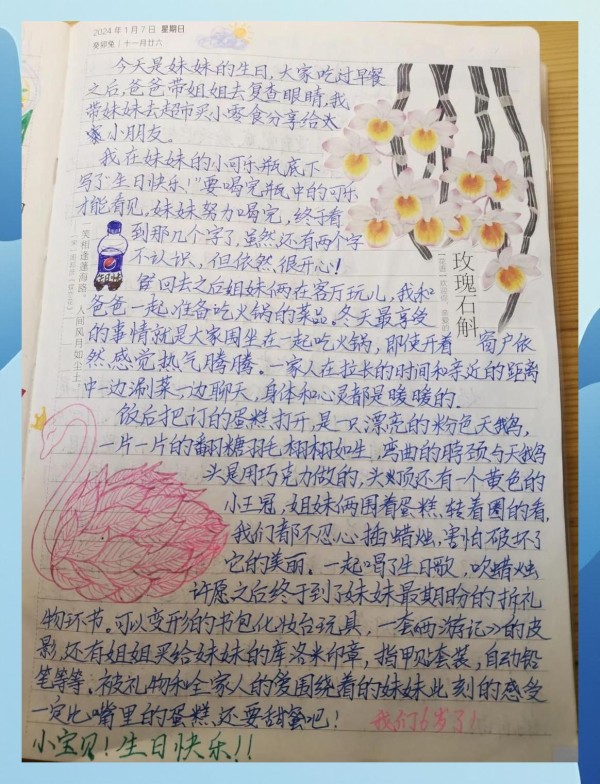 2024年1月7日 星期日
癸卯兔｜十一月廿六
今天是妹妹的生日，大家吃过早餐
之后，爸爸带姐姐去复查眼睛，我
带妹妹去超市买小零食分享给大
家小朋友。
我在妹妹的小可乐瓶底下
写了"生日快乐！"要喝完瓶中的可乐
才能看见，妹妹努力喝完，终于看
到那几个字了，虽然还有两个字
不认识，但依然很开心！
回去之后姐妹俩在客厅玩儿，我和
爸爸一起准备吃火锅的菜品。冬天最享受
的事情就是大家围坐在一起吃火锅，即使开着 窗户依
然感觉热气腾腾。一家人在拉长的时间和亲近的距离
中一边涮菜一边聊天，身体和心灵都是暖暖的。
饭后把订的蛋糕打开，是一只漂亮的粉色天鹅，
一片一片的翻糖羽毛栩栩如生，弯曲的脖颈与天鹅
头是用巧克力做的，头顶还有一个黄色的
小王冠，姐妹俩围着蛋糕转着圈的看，
我们都不忍心插蜡烛，害怕破坏了
它的美丽。一起唱了生日歌，吹蜡烛
许愿之后终于到了妹妹最期盼的拆礼
物环节。可以变形的书包化妆台玩具，一套《西游记》的皮
影，还有姐姐买给妹妹的库洛米印章，指甲套装，自动铅
笔等等。被礼物和全家人的爱围绕着的妹妹此刻的感受
一定比嘴里的蛋糕还要甜蜜吧！
我们6岁了！
小宝贝！生日快乐！！
玫瑰石斛
笑相逢蓬海路，人间风月如尘土。